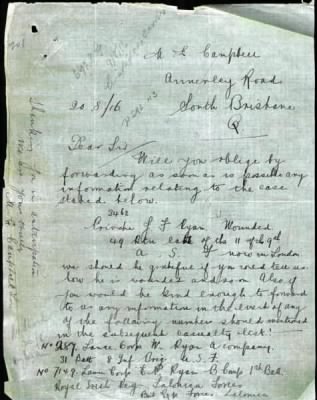 M E Campbell
Annerley Road
20/8/16 South Brisbane
Q
Dear Sir
Will you oblige by
forwarding as soon as possible any
information relating to the case
stated below.
3462
Private J F Ryan Wounded
49 Btn late of the 11 of 9th
A I F now in London
we should be grateful if you could tell us
how he is wounded and soon Also if
you would be kind enough to forward
to us any information in the event of any
of the following number should mentioned
in the subsequent casualty list.
No 287. Lance Corp W. Ryan A company.
31 Batt 8 Inf Brig A.I.F.
No 7149. Lance Corp E P Ryan B Comp 1st Batt.
Royal Irish Reg Salonica Forces
Brit Exp Forces Salonica
Thanking you in anticipation
we are yours truly
M E Campbell